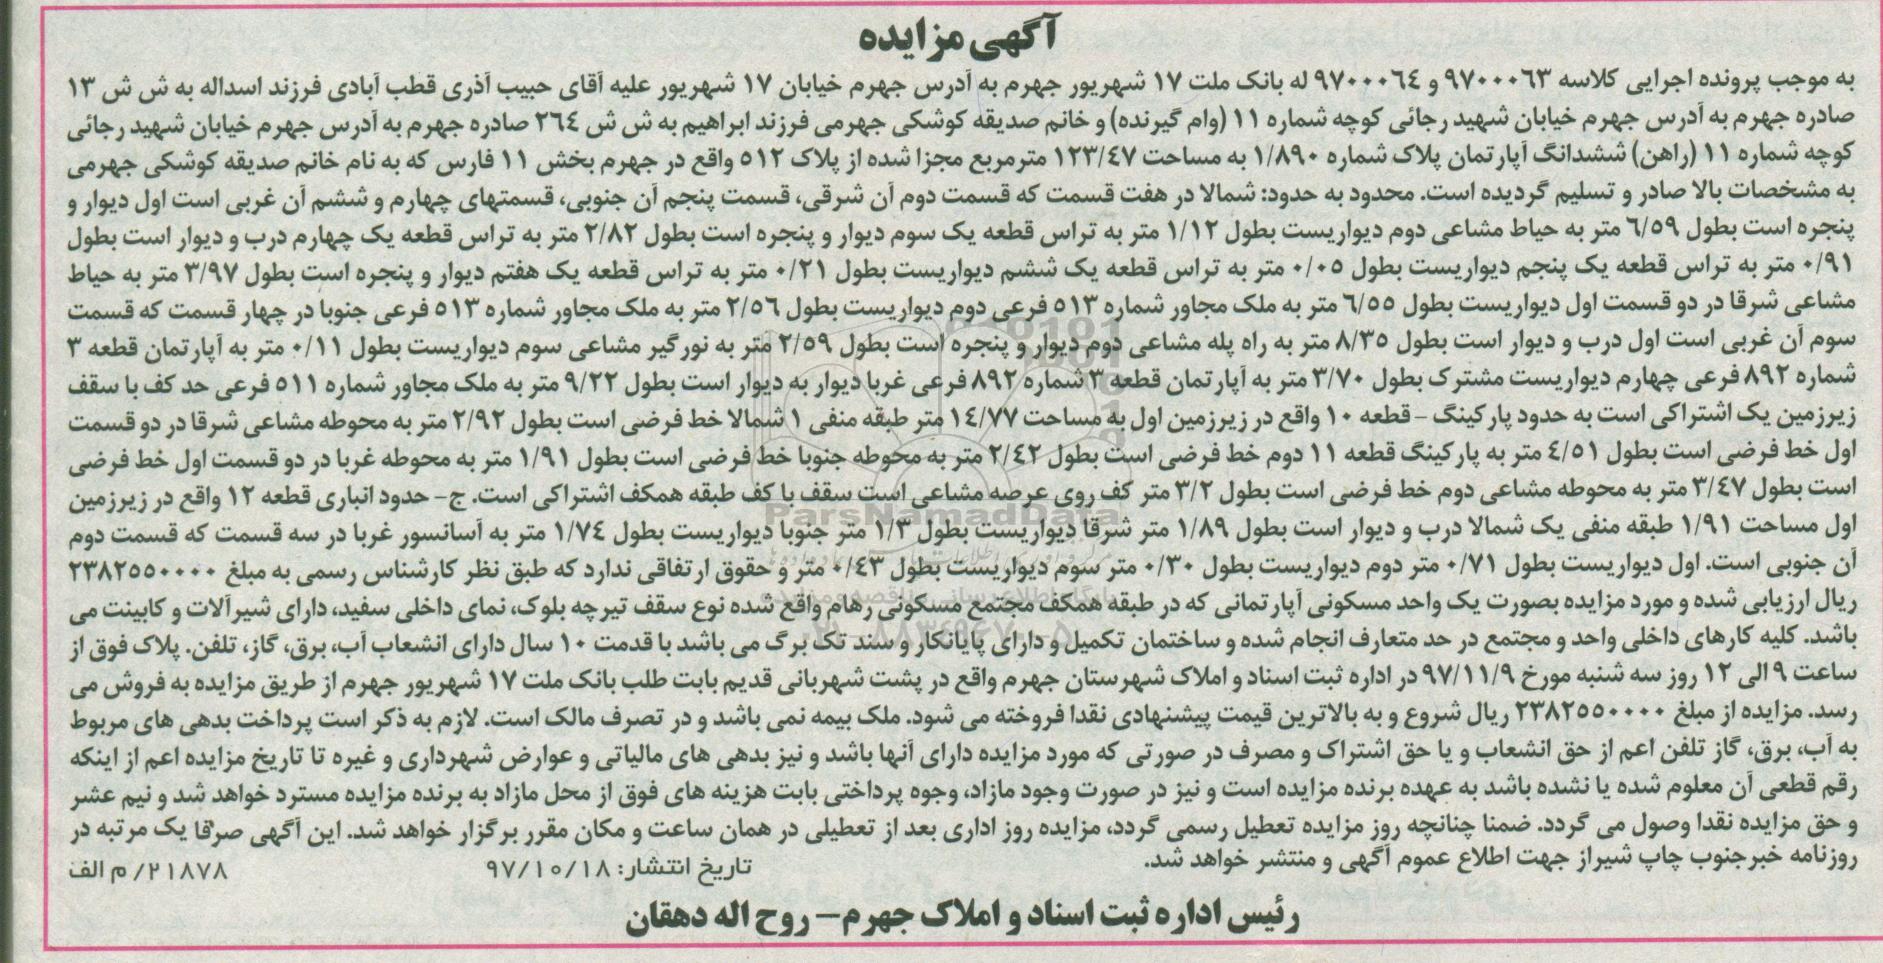 آگهی مزایده
به موجب پرونده اجرایی کلاسه ۹۷۰۰۰۶۳ و ۹۷۰۰۰۶۴ له بانک ملت ۱۷ شهریور جهرم به آدرس جهرم خیابان ۱۷ شهریور علیه آقای حبیب آذری قطب آبادی فرزند اسداله به ش ش ۱۳
صادره جهرم به آدرس جهرم خیابان شهید رجائی کوچه شماره ۱۱ (وام گیرنده) و خانم صدیقه کوشکی جهرمی فرزند ابراهیم به ش ش ۲۶۴ صادره جهرم به آدرس جهرم خیابان شهید رجائی
کوچه شماره ۱۱ (راهن) ششدانگ آپارتمان پلاک شماره ۱/۸۹۰ به مساحت ۱۲۳/۴۷ مترمربع مجزا شده از پلاک ۵۱۲ واقع در جهرم بخش ۱۱ فارس که به نام خانم صدیقه کوشکی جهرمی
به مشخصات بالا صادر و تسلیم گردیده است. محدود به حدود: شمالا در هفت قسمت که قسمت دوم آن شرقی، قسمت پنجم آن جنوبی، قسمتهای چهارم و ششم آن غربی است اول دیوار و
پنجره است بطول ۶/۵۹ متر به حیاط مشاعی دوم دیواریست بطول ۱/۱۲ متر به تراس قطعه یک سوم دیوار و پنجره است بطول ۲/۸۲ متر به تراس قطعه یک چهارم درب و دیوار است بطول
۰/۹۱ متر به تراس قطعه یک پنجم دیواریست بطول ۰/۰۵ متر به تراس قطعه یک ششم دیواریست بطول ۰/۲۱ متر به تراس قطعه یک هفتم دیوار و پنجره است بطول ۳/۹۷ متر به حیاط
مشاعی شرقا در دو قسمت اول دیواریست بطول ۶/۵۵ متر به ملک مجاور شماره ۵۱۳ فرعی دوم دیواریست بطول ۲/۵۶ متر به ملک مجاور شماره ۵۱۳ فرعی جنوبا در چهار قسمت که قسمت
سوم آن غربی است اول درب و دیوار است بطول ۸/۳۵ متر به راه پله مشاعی دوم دیوار و پنجره است بطول ۲/۵۹ متر به نورگیر مشاعی سوم دیواریست بطول ۰/۱۱ متر به آپارتمان قطعه ۳
شماره ۸۹۲ فرعی چهارم دیواریست مشترک بطول ۳/۷۰ متر به آپارتمان قطعه ۳ شماره ۸۹۲ فرعی غربا دیوار به دیوار است بطول ۹/۲۲ متر به ملک مجاور شماره ۵۱۱ فرعی حد کف با سقف
زیرزمین یک اشتراکی است به حدود پارکینگ - قطعه ۱۰ واقع در زیرزمین اول به مساحت ۱۴/۷۷ متر طبقه منفی ۱ شمالا خط فرضی است بطول ۲/۹۲ متر به محوطه مشاعی شرقا در دو قسمت
اول خط فرضی است بطول ۴/۵۱ متر به پارکینگ قطعه ۱۱ دوم خط فرضی است بطول ۲/۴۲ متر به محوطه جنوبا خط فرضی است بطول ۱/۹۱ متر به محوطه غربا در دو قسمت اول خط فرضی
است بطول ۳/۴۷ متر به محوطه مشاعی دوم خط فرضی است بطول ۳/۲ متر کف روی عرصه مشاعی است سقف با کف طبقه همکف اشتراکی است. ج- حدود انباری قطعه ۱۲ واقع در زیرزمین
اول مساحت ۱/۹۱ طبقه منفی یک شمالا درب و دیوار است بطول ۱/۸۹ متر شرقا دیواریست بطول ۱/۳ متر جنوبا دیواریست بطول ۱/۷۴ متر به آسانسور غربا در سه قسمت که قسمت دوم
آن جنوبی است. اول دیواریست بطول ۰/۷۱ متر دوم دیواریست بطول ۰/۳۰ متر سوم دیواریست بطول ۰/۴۳ متر و حقوق ارتفاقی ندارد که طبق نظر کارشناس رسمی به مبلغ ۲۳۸۲۵۵۰۰۰۰
ریال ارزیابی شده و مورد مزایده بصورت یک واحد مسکونی آپارتمانی که در طبقه همکف مجتمع مسکونی رهام واقع شده نوع سقف تیرچه بلوک، نمای داخلی سفید، دارای شیرآلات و کابینت می
باشد. کلیه کارهای داخلی واحد و مجتمع در حد متعارف انجام شده و ساختمان تکمیل و دارای پایانکار و سند تک برگ می باشد با قدمت ۱۰ سال دارای انشعاب آب، برق، گاز، تلفن. پلاک فوق از
ساعت ۹ الی ۱۲ روز سه شنبه مورخ ۹۷/۱۱/۹ در اداره ثبت اسناد و املاک شهرستان جهرم واقع در پشت شهربانی قدیم بابت طلب بانک ملت ۱۷ شهریور جهرم از طریق مزایده به فروش می
رسد. مزایده از مبلغ ۲۳۸۲۵۵۰۰۰۰ ریال شروع و به بالاترین قیمت پیشنهادی نقدا فروخته می شود. ملک بیمه نمی باشد و در تصرف مالک است. لازم به ذکر است پرداخت بدهی های مربوط
به آب، برق، گاز تلفن اعم از حق انشعاب و یا حق اشتراک و مصرف در صورتی که مورد مزایده دارای آنها باشد و نیز بدهی های مالیاتی و عوارض شهرداری و غیره تا تاریخ مزایده اعم از اینکه
رقم قطعی آن معلوم شده یا نشده باشد به عهده برنده مزایده است و نیز در صورت وجود مازاد، وجوه پرداختی بابت هزینه های فوق از محل مازاد به برنده مزایده مسترد خواهد شد و نیم عشر
و حق مزایده نقدا وصول می گردد. ضمنا چنانچه روز مزایده تعطیل رسمی گردد، مزایده روز اداری بعد از تعطیلی در همان ساعت و مکان مقرر برگزار خواهد شد. این آگهی صرفا یک مرتبه در
روزنامه خبرجنوب چاپ شیراز جهت اطلاع عموم آگهی و منتشر خواهد شد.
تاریخ انتشار: ۹۷/۱۰/۱۸
۲۱۸۷۸/ م الف
رئیس اداره ثبت اسناد و املاک جهرم – روح اله دهقان
ParsNamadData